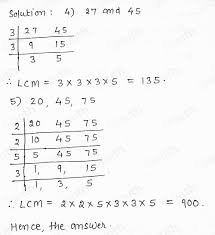 Solution : 4) 27 and 45
3 | 27 45
3 | 9 15
3 5
∴ LCM = 3 x 3 x 3 x 5 = 135.
5) 20, 45, 75
2 | 20 45 75
2 | 10 45 75
5 | 5 45 75
3 | 1, 9, 15
1, 3, 5
∴ LCM = 2 x 2 x 5 x 3 x 3 x 5 = 900.
Hence, the answer.